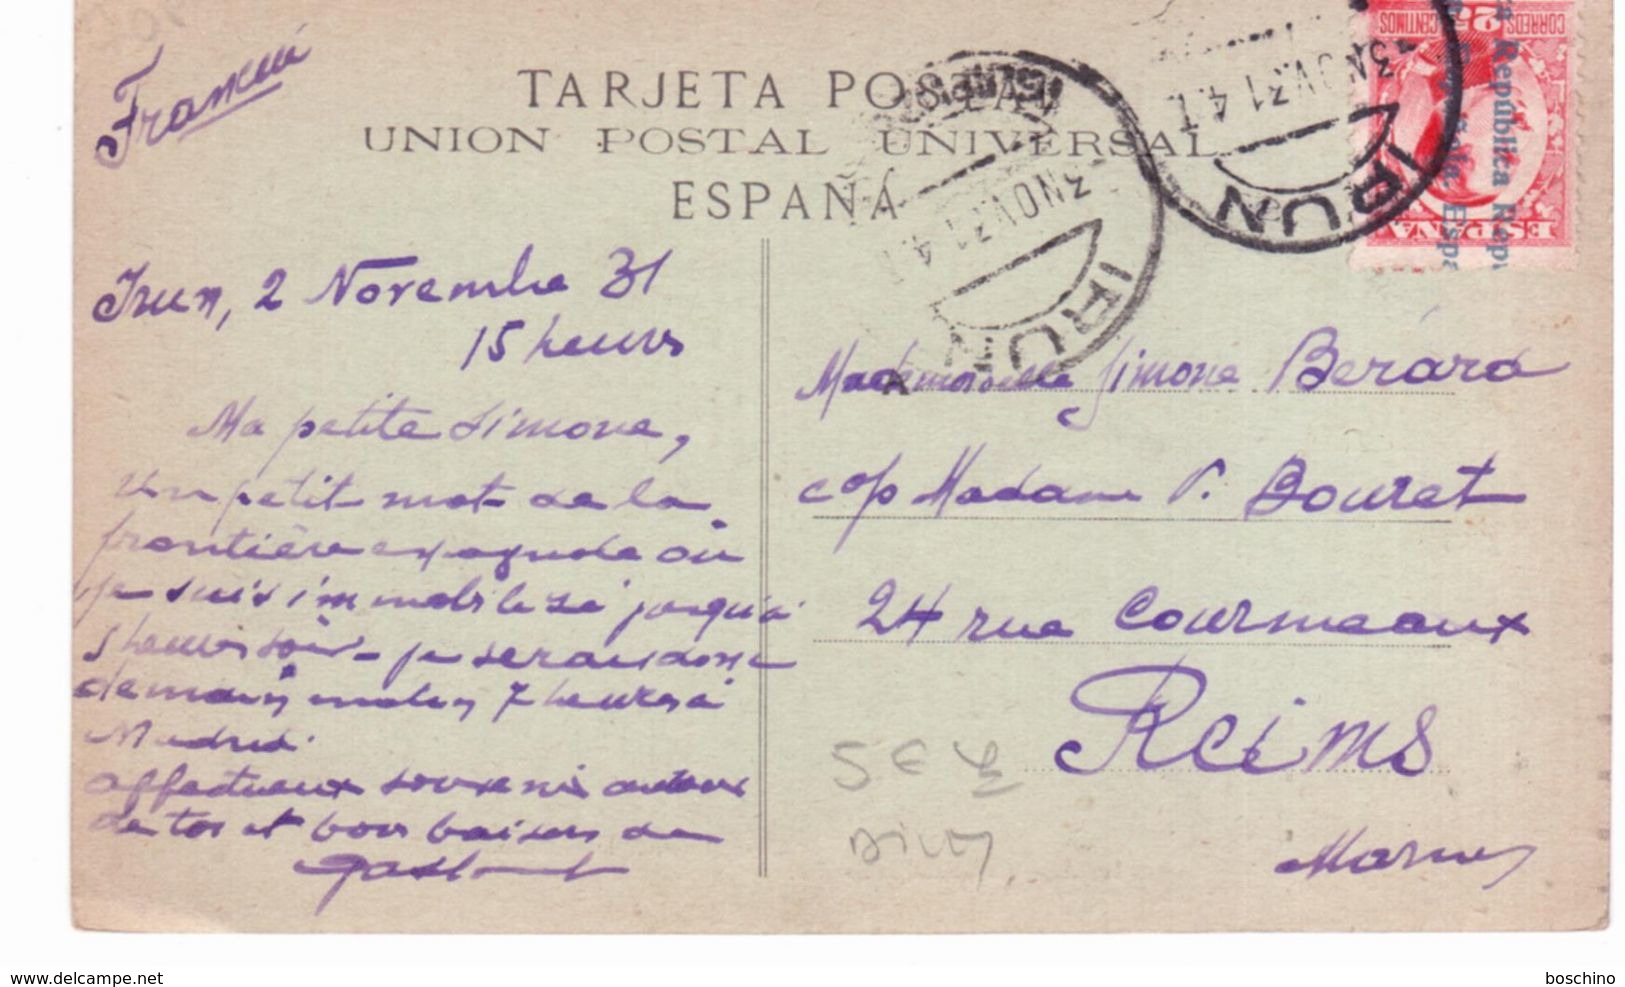 Francia
TARJETA POSTAL
UNION POSTAL UNIVERSAL
ESPAÑA
3 NOV.31 4.T
IRUN
3 NOV.31 4.T
IRUN
CORREOS 25 CENTIMOS
ESPAÑA
República Española
Irun, 2 Novembre 31
15 heures
Ma petite Simone,
Un petit mot de la
frontière espagnole où
je suis immobilisé jusqu'à
heures soir - je serai donc
demain matin 7 heures à
Madrid.
affectueux souvenir autour
de toi et bons baisers de
Gaston
Mademoiselle Simone Bérard
c/o Madame P. Bouret
24 rue Courmeaux
Reims
Marne
5€
delcampe.net
boschino